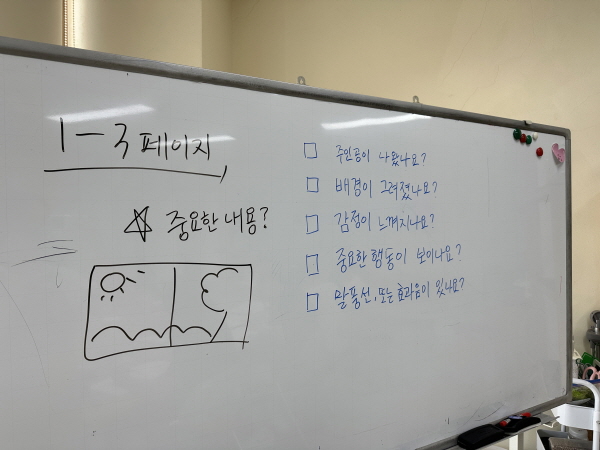 1-3 페이지
☆ 중요한 내용?
□ 주인공이 나왔나요?
□ 배경이 그려졌나요?
□ 감정이 느껴지나요?
□ 중요한 행동이 보이나요?
□ 말풍선, 또는 효과음이 있나요?